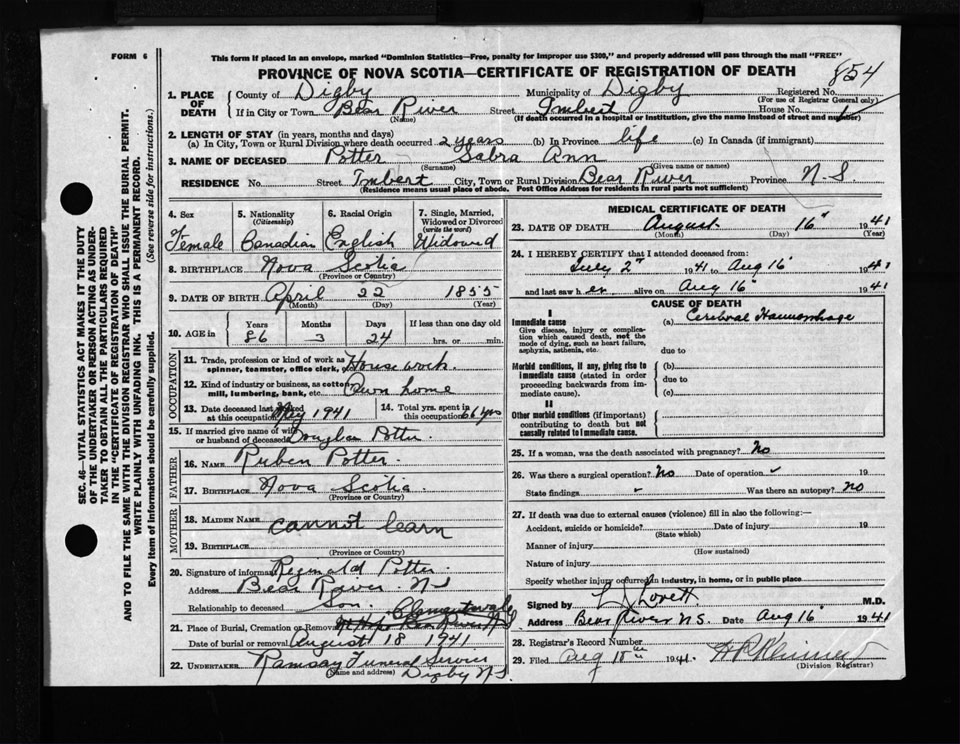 FORM 6
This form if placed in an envelope, marked "Dominion Statistics—Free, penalty for improper use $300," and properly addressed will pass through the mail "FREE"
PROVINCE OF NOVA SCOTIA—CERTIFICATE OF REGISTRATION OF DEATH
854
1. PLACE OF DEATH
County of Digby Municipality of Digby Registered No.
(For use of Registrar General only)
If in City or Town Bear River Street Imbert House No.
(Name) (If death occurred in a hospital or institution, give the name instead of street and number)
2. LENGTH OF STAY (in years, months and days)
(a) In City, Town or Rural Division where death occurred 2 years (b) In Province life (c) In Canada (if immigrant)
3. NAME OF DECEASED Potter Sabra Ann
(Surname) (Given name or names)
RESIDENCE No. Street Imbert City, Town or Rural Division Bear River Province N.S
(Residence means usual place of abode. Post Office Address for residents in rural parts not sufficient)
4. Sex Female
5. Nationality (Citizenship) Canadian
6. Racial Origin English
7. Single, Married, Widowed or Divorced (write the word) Widowed
8. BIRTHPLACE Nova Scotia
(Province or Country)
9. DATE OF BIRTH April 22 1855
(Month) (Day) (Year)
10. AGE in Years Months Days If less than one day old
86 3 24 hrs. or min.
OCCUPATION
11. Trade, profession or kind of work as spinner, teamster, office clerk, etc. House work
12. Kind of industry or business, as cotton mill, lumbering, bank, etc. Own home
13. Date deceased last worked at this occupation May 1941
14. Total yrs. spent in this occupation 66 yrs
15. If married give name of wife or husband of deceased Douglas Potter
FATHER
16. NAME Ruben Potter
17. BIRTHPLACE Nova Scotia
(Province or Country)
MOTHER
18. MAIDEN NAME cannot learn
19. BIRTHPLACE
(Province or Country)
20. Signature of informant Reginald Potter
Address Bear River N.S
Relationship to deceased Son
21. Place of Burial, Cremation or Removal Clementsvale
Date of burial or removal August 18 1941
22. UNDERTAKER Ramsay Funeral Service
(Name and address) Digby N.S.
MEDICAL CERTIFICATE OF DEATH
23. DATE OF DEATH August 16" 1941
(Month) (Day) (Year)
24. I HEREBY CERTIFY that I attended deceased from:
July 2" 1941 to Aug 16" 1941
and last saw her alive on Aug 16" 1941
CAUSE OF DEATH
I
Immediate cause (a) Cerebral Haemorrhage
Give disease, injury or complication which caused death, not the mode of dying, such as heart failure, asphyxia, asthenia, etc.
due to
Morbid conditions, if any, giving rise to immediate cause (stated in order proceeding backwards from immediate cause).
(b)
due to
(c)
II
Other morbid conditions (if important) contributing to death but not causally related to immediate cause.
25. If a woman, was the death associated with pregnancy? No
26. Was there a surgical operation? No Date of operation 19
State findings Was there an autopsy? No
27. If death was due to external causes (violence) fill in also the following:—
Accident, suicide or homicide? Date of injury 19
(State which)
Manner of injury
(How sustained)
Nature of injury
Specify whether injury occurred in industry, in home, or in public place
Signed by L J Lovett M.D.
Address Bear River N.S. Date Aug 16" 1941
28. Registrar's Record Number
29. Filed Aug 18th 1941.
(Division Registrar)
SEC. 46—VITAL STATISTICS ACT MAKES IT THE DUTY
OF THE UNDERTAKER OR PERSON ACTING AS UNDER-
TAKER TO OBTAIN ALL THE PARTICULARS REQUIRED
IN THE "CERTIFICATE OF REGISTRATION OF DEATH"
AND TO FILE THE SAME WITH THE DIVISION REGISTRAR WHO SHALL ISSUE THE BURIAL PERMIT.
WRITE PLAINLY WITH UNFADING INK. THIS IS A PERMANENT RECORD.
Every item of information should be carefully supplied. (See reverse side for instructions.)